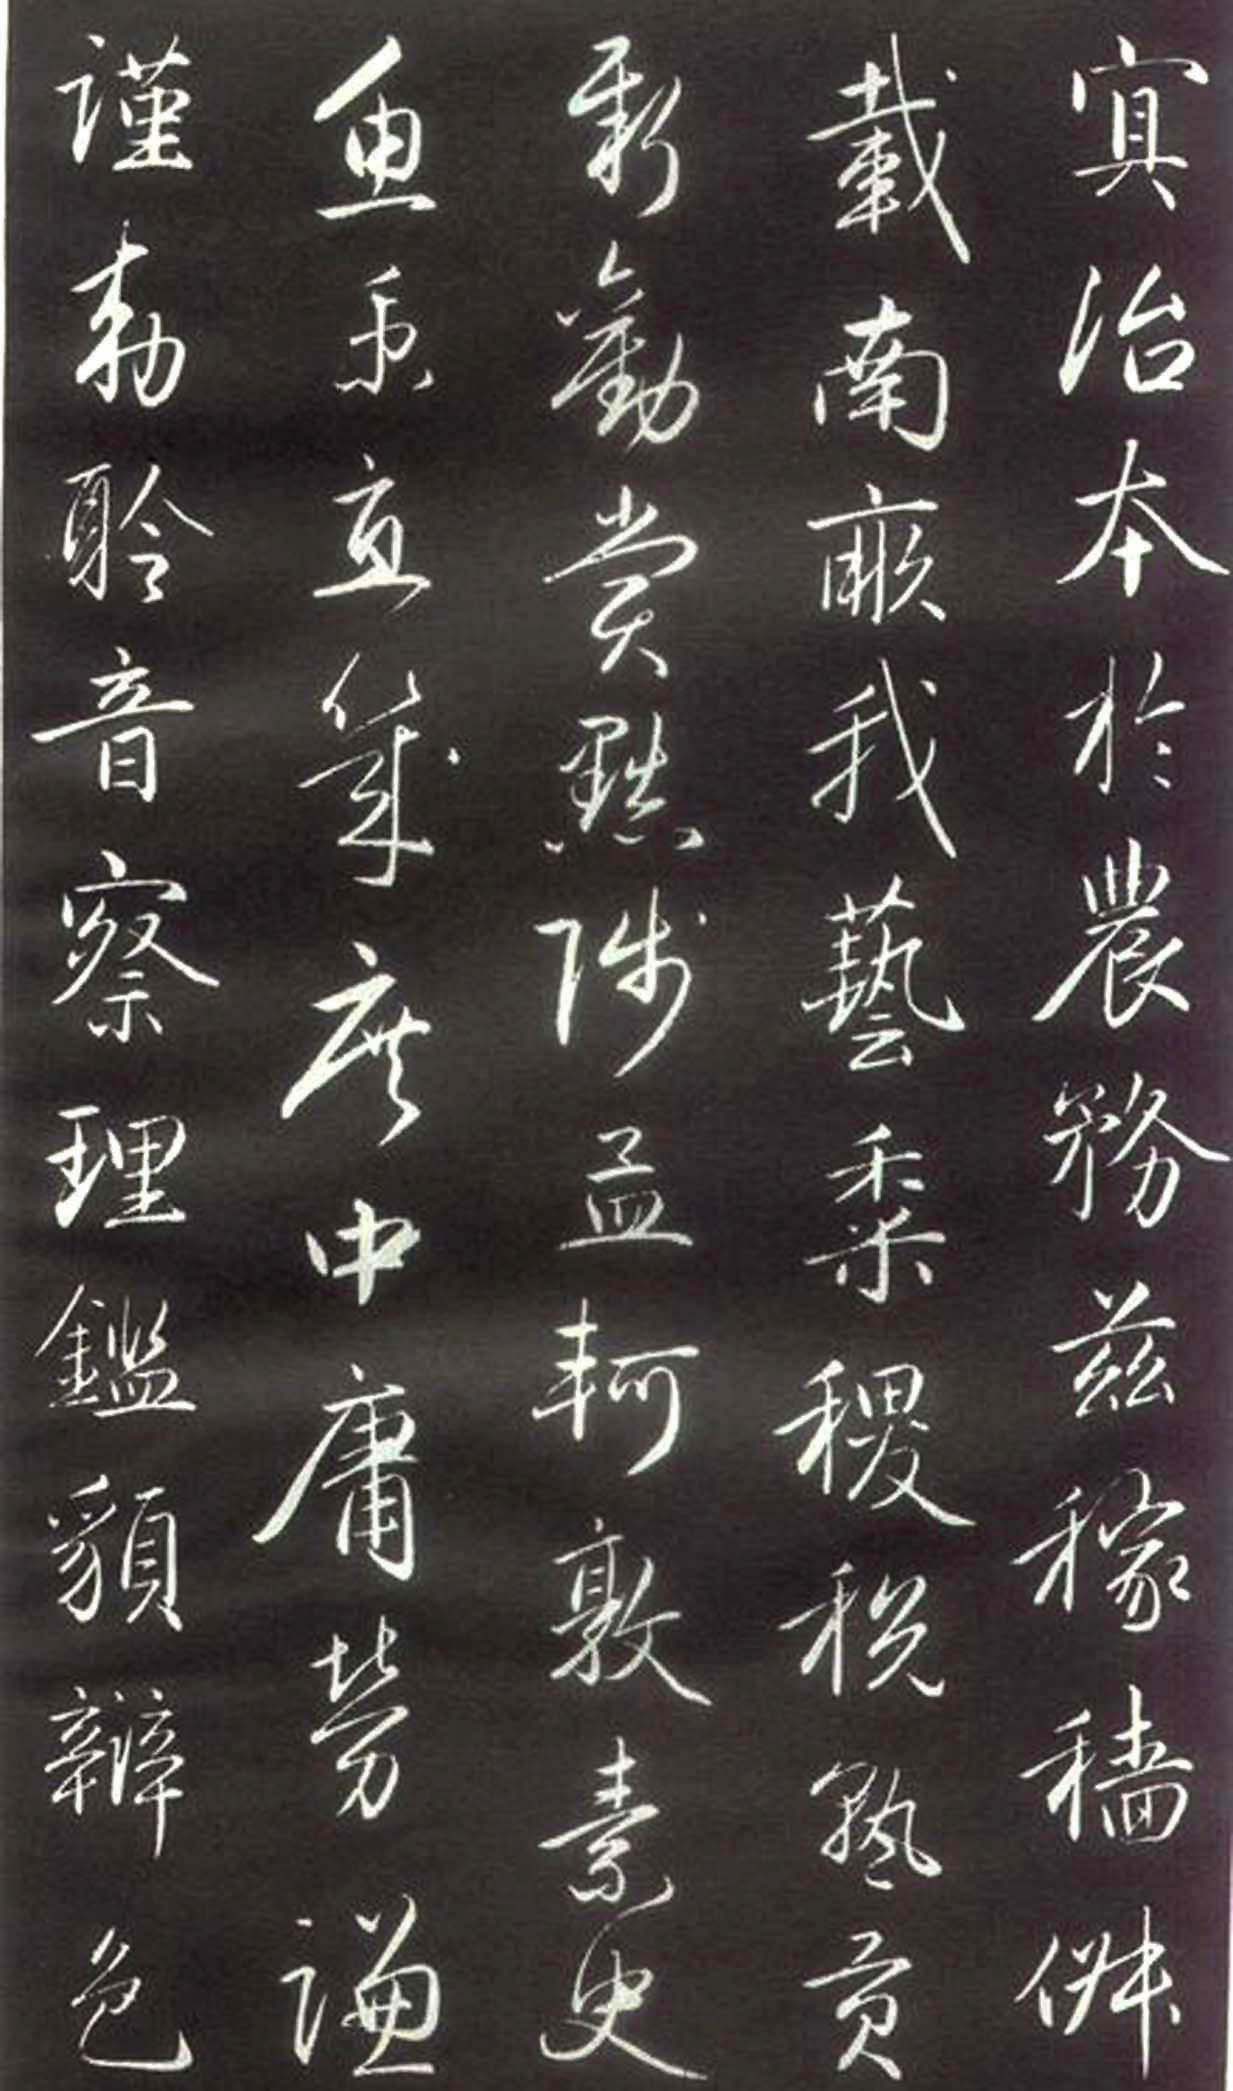 冥治本於農務茲稼穡俶
載南畝我藝黍稷稅熟貢
新勸賞黜陟孟軻敦素史
魚秉直幾庶中庸勞謙
謹勑聆音察理鑑貌辯色